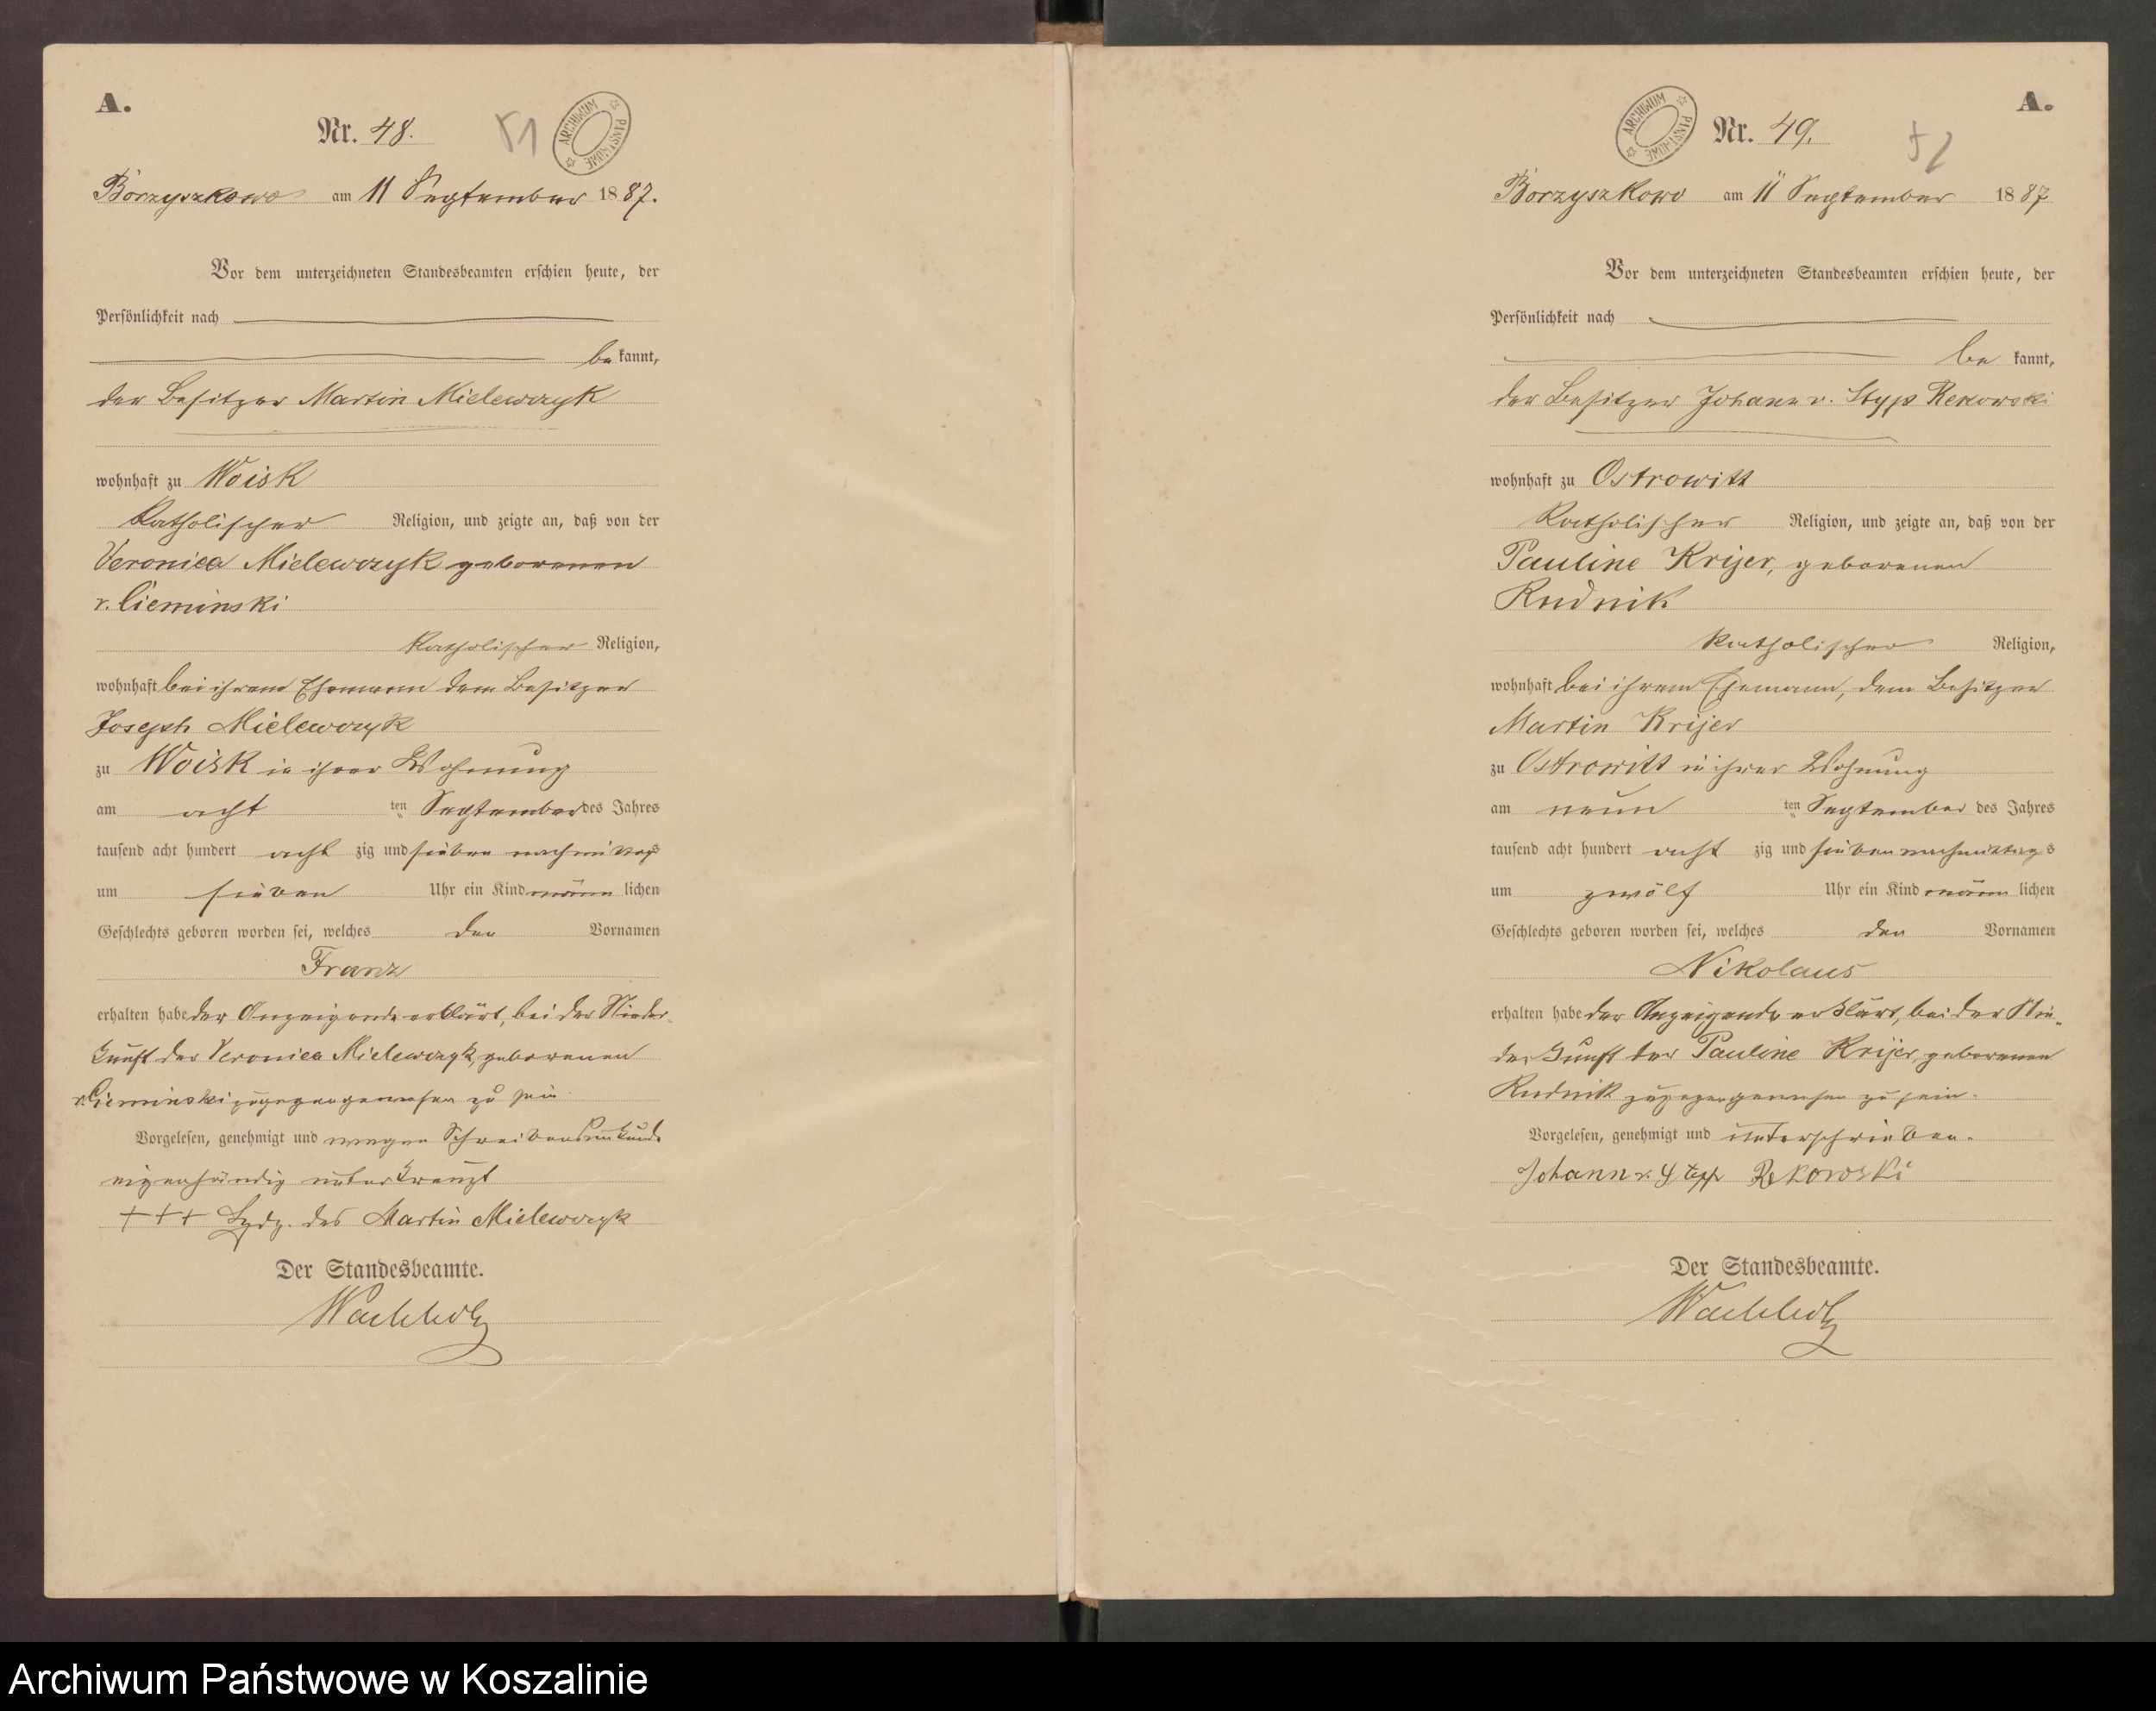 A.
Nr. 48.
51
ARCHIWUM PAŃSTWOWE
Borzyszkowo am 11 September 1887.
Vor dem unterzeichneten Standesbeamten erschien heute, der
Persönlichkeit nach
be kannt,
der Besitzer Martin Mielewczyk
wohnhaft zu Woisk
katholischer Religion, und zeigte an, daß von der
Veronica Mielewczyk geborenen
v. Cieminski
katholischer Religion,
wohnhaft bei ihrem Ehemann dem Besitzer
Joseph Mielewczyk
zu Woisk in ihrer Wohnung
am acht ten September des Jahres
tausend acht hundert acht zig und sieben nachmittags
um sieben Uhr ein Kind männ lichen
Geschlechts geboren worden sei, welches den Vornamen
Franz
erhalten habe der Anzeigende erklärt, bei der Nieder-
kunft der Veronica Mielewczyk, geborenen
v. Cieminski zugegen gewesen zu sein
Vorgelesen, genehmigt und wegen Schreibensunkunde
eigenhändig unterkreuzt
+++ Hdz. des Martin Mielewczyk
Der Standesbeamte.
Wachholz
A.
ARCHIWUM PAŃSTWOWE
Nr. 49.
52
Borzyszkowo am 11 September 1887
Vor dem unterzeichneten Standesbeamten erschien heute, der
Persönlichkeit nach
be kannt,
der Besitzer Johann v. Styp Rekowski
wohnhaft zu Ostrowitt
katholischer Religion, und zeigte an, daß von der
Pauline Krijer, geborenen
Rudnik
katholischer Religion,
wohnhaft bei ihrem Ehemann, dem Besitzer
Martin Krijer
zu Ostrowitt in ihrer Wohnung
am neun ten September des Jahres
tausend acht hundert acht zig und sieben nachmittags
um zwölf Uhr ein Kind männ lichen
Geschlechts geboren worden sei, welches den Vornamen
Nikolaus
erhalten habe der Anzeigende erklärt, bei der Nie-
derkunft der Pauline Krijer, geborenen
Rudnik zugegen gewesen zu sein.
Vorgelesen, genehmigt und unterschrieben.
Johann v. Styp Rekowski
Der Standesbeamte.
Wachholz
Archiwum Państwowe w Koszalinie